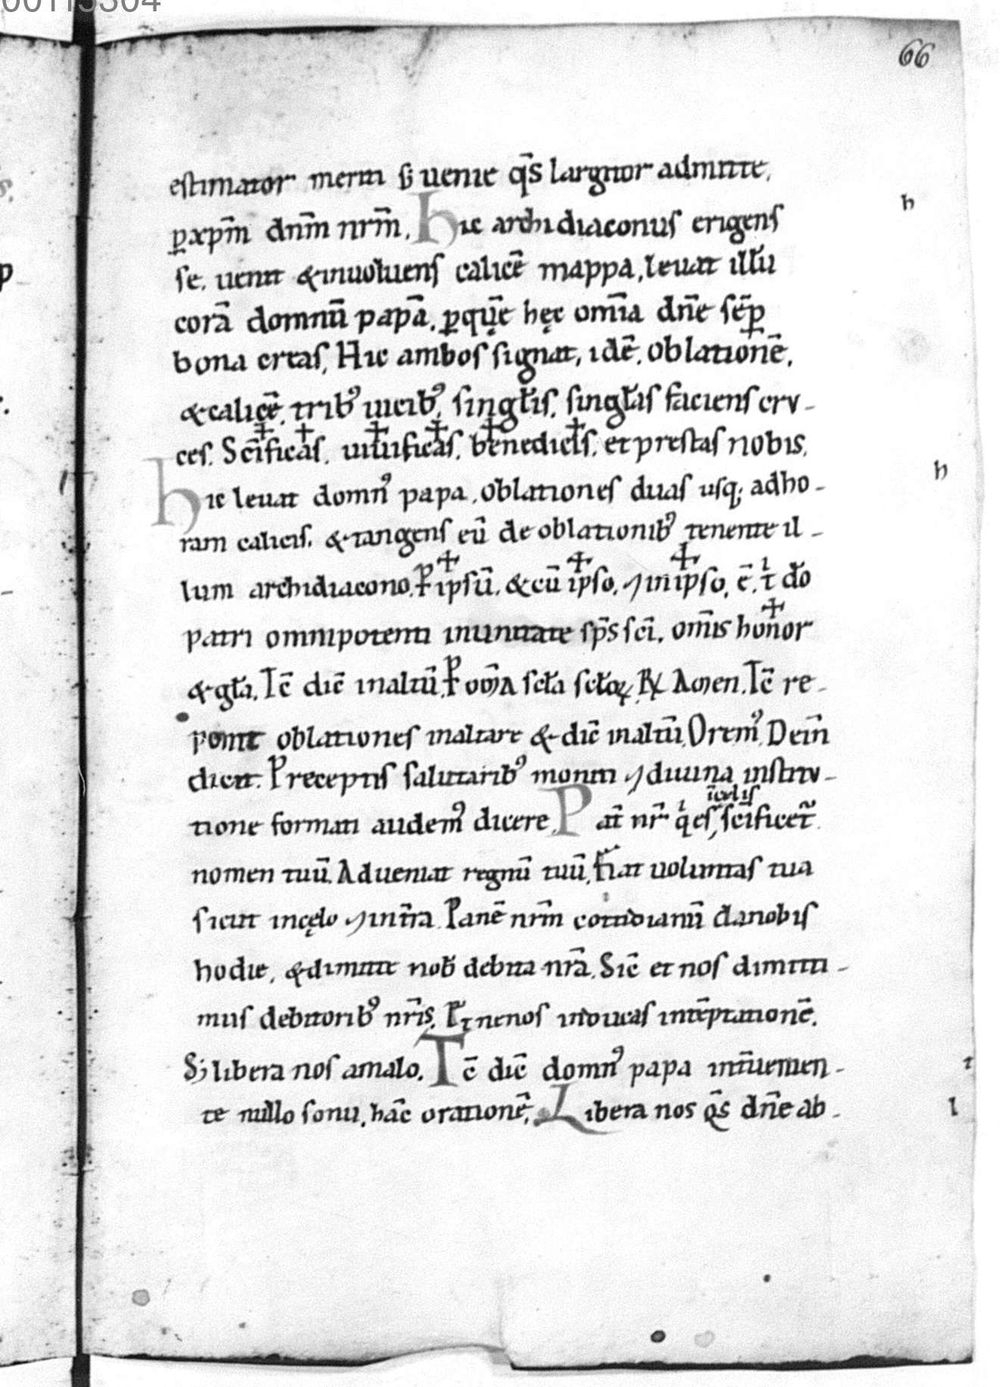 66
estimator meriti s; uenie q̄s largitor admitte,
ꝑ xp̄m dnm̄ nrm̄. Hic archidiaconus erigens
se. uenit & inuoluens calicē mappa, leuat illū
corā domnū papā. ꝑ quē hęc om̄ia dn̄e sēꝑ
bona creas, Hic ambos signat, idē, oblationē,
& calicē, trib᷒ uicib᷒, singłis, singłas faciens crv-
ces. Sc̄ificas, uiuificas, benedicis, et prestas nobis,
hic leuat domn᷒ papa, oblationes duas usq; ad ho-
ram calicis. & tangens eū de oblationib᷒ tenente il-
lum archidiacono. P ipsū, & cū ipso, ⁊ in ipso, ē. t do
patri omnipotenti in unitate sp̄s sc̄i, om̄is honor
& gła, Tē dic̄ in altū, P om̄a scła scłoꝝ, ℟ Amen, Tē re-
ponit oblationes in altare & dic̄ in altū, Orem᷒, Dein̄
dicit. Preceptis salutarib᷒ moniti ⁊ diuina institv-
tione formati audem᷒ dicere, Pat̄ nr̄ q es
in celis
sc̄ificet̄
nomen tuū. Adueniat regnū tuū, fiat uoluntas tua
sicut in cęlo ⁊ in t̄ra. Panē nrm̄ cottidianū da nobis
hodie, & dimitte nob̄ debita nr̄a, Sic̄ et nos dimitti-
mus debitorib᷒ nr̄is, Et ne nos inducas in tēptationē,
S; libera nos a malo, Tē dic̄ domn᷒ papa int̄uenien-
te nullo sonu, hāc orationē, Libera nos q̄s dn̄e ab-
h
h
t
l